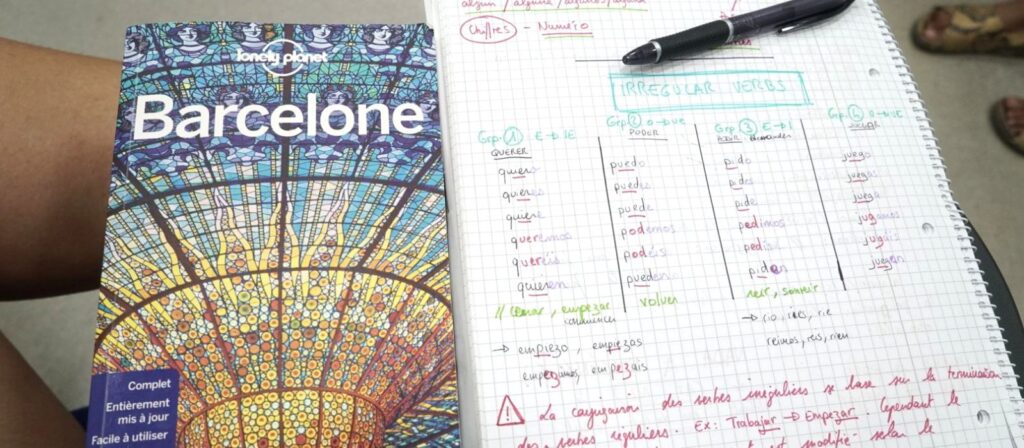 lonely planet
Barcelone
Complet
Entièrement
mis à jour
Facile à utiliser
algún / alguna / algunos / algunas
Chiffres - Numéro
IRREGULAR VERBS
Grp. 1 E → IE
QUERER
quiero
quieres
quiere
queremos
queréis
quieren
// cerrar, empezar
commencer
→ empiezo, empiezas
empezamos, empezais
Grp. 2 O → UE
PODER
puedo
puedes
puede
podemos
podéis
pueden
volver
Grp. 3 E → I
PEDIR
pido
pides
pide
pedimos
pedís
piden
reir, sonreir
→ rio, ries, rie
reimos, reis, rien
Grp. 4
JUGAR
juego
juegas
juega
jugamos
jugáis
juegan
La conjugaison des verbes irréguliers se base sur la terminaison
des verbes réguliers. Ex: Trabajar → Empezar. Cependant le
modifié selon le